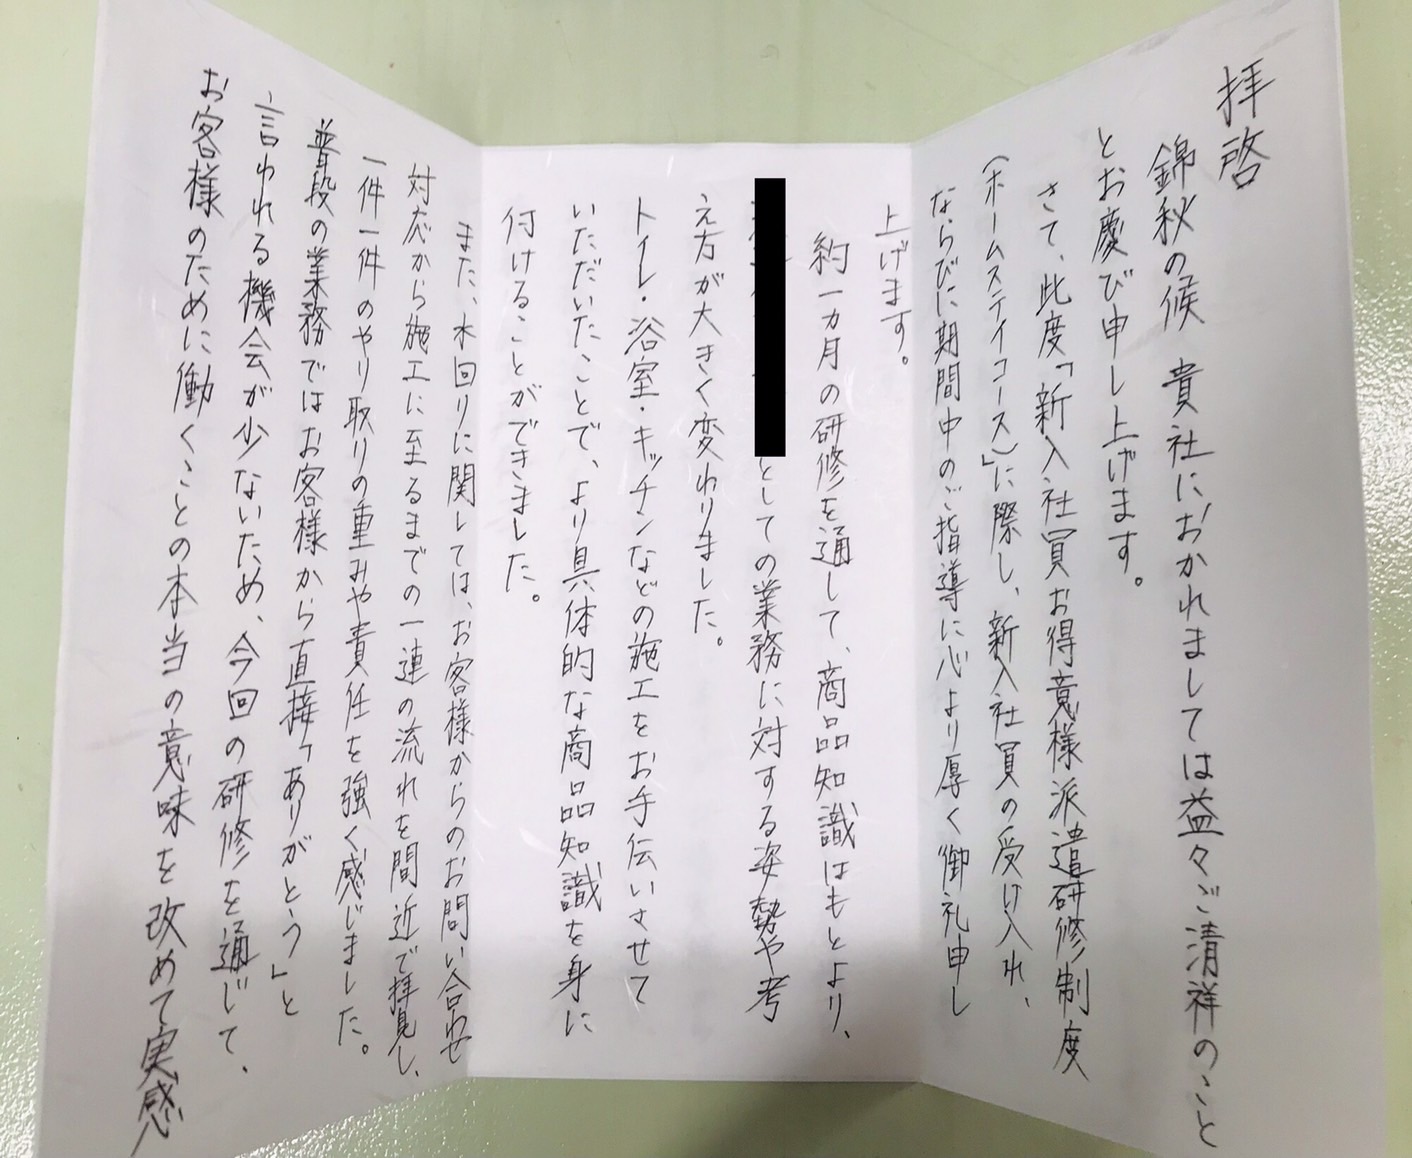 拝啓
錦秋の候 貴社におかれましては益々ご清祥のこと
とお慶び申し上げます。
さて、此度「新入社員お得意様派遣研修制度
(ホームステイコース)」に際し、新入社員の受け入れ、
ならびに期間中のご指導に心より厚く御礼申し
上げます。
約一カ月の研修を通して、商品知識はもとより、
としての業務に対する姿勢や考
え方が大きく変わりました。
トイレ・浴室・キッチンなどの施工をお手伝いさせて
いただいたことで、より具体的な商品知識を身に
付けることができました。
また、水回りに関しては、お客様からのお問い合わせ
対応から施工に至るまでの一連の流れを間近で拝見し、
一件一件のやり取りの重みや責任を強く感じました。
普段の業務ではお客様から直接「ありがとう」と
言われる機会が少ないため、今回の研修を通じて、
お客様のために働くことの本当の意味を改めて実感